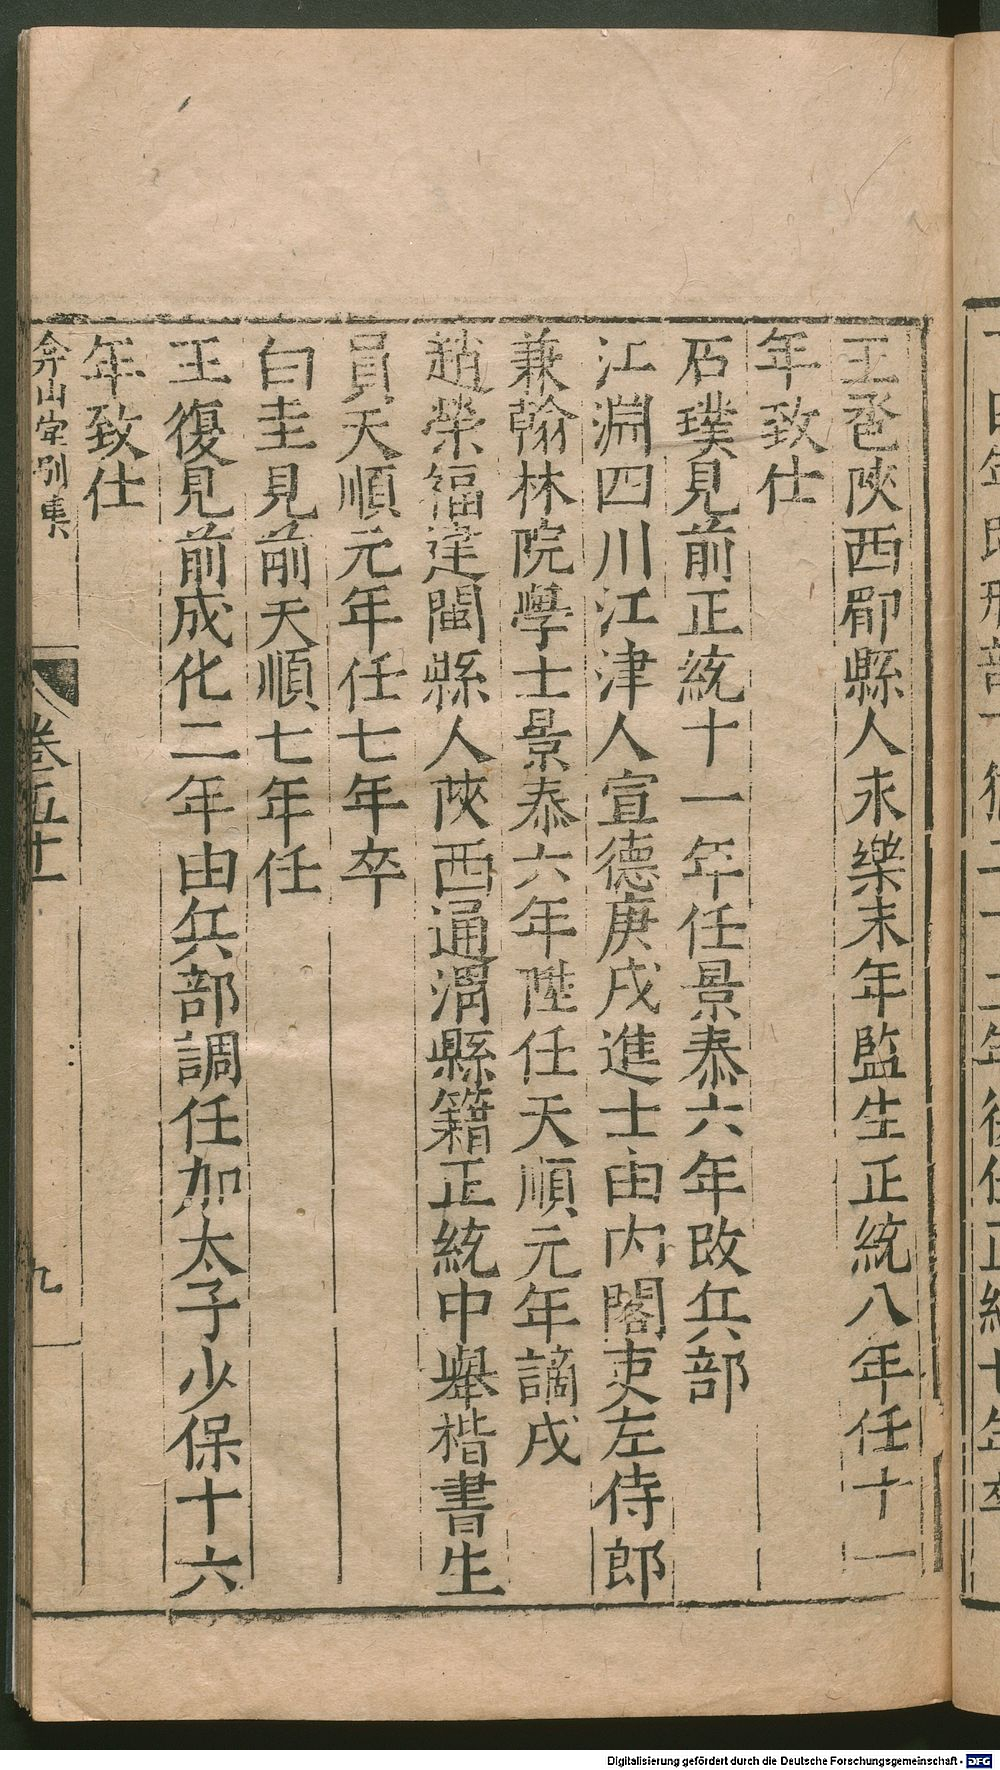 王卺陝西郿縣人永樂末年監生正統八年任十一
年致仕
石璞見前正統十一年任景泰六年改兵部
江淵四川江津人宣德庚戌進士由內閣吏左侍郎
兼翰林院學士景泰六年陞任天順元年謫戍
趙榮福建閩縣人陝西通渭縣籍正統中舉楷書生
員天順元年任七年卒
白圭見前天順七年任
王復見前成化二年由兵部調任加太子少保十六
年致仕
弇山堂別集
卷五十
九
Digitalisierung gefördert durch die Deutsche Forschungsgemeinschaft - DFG